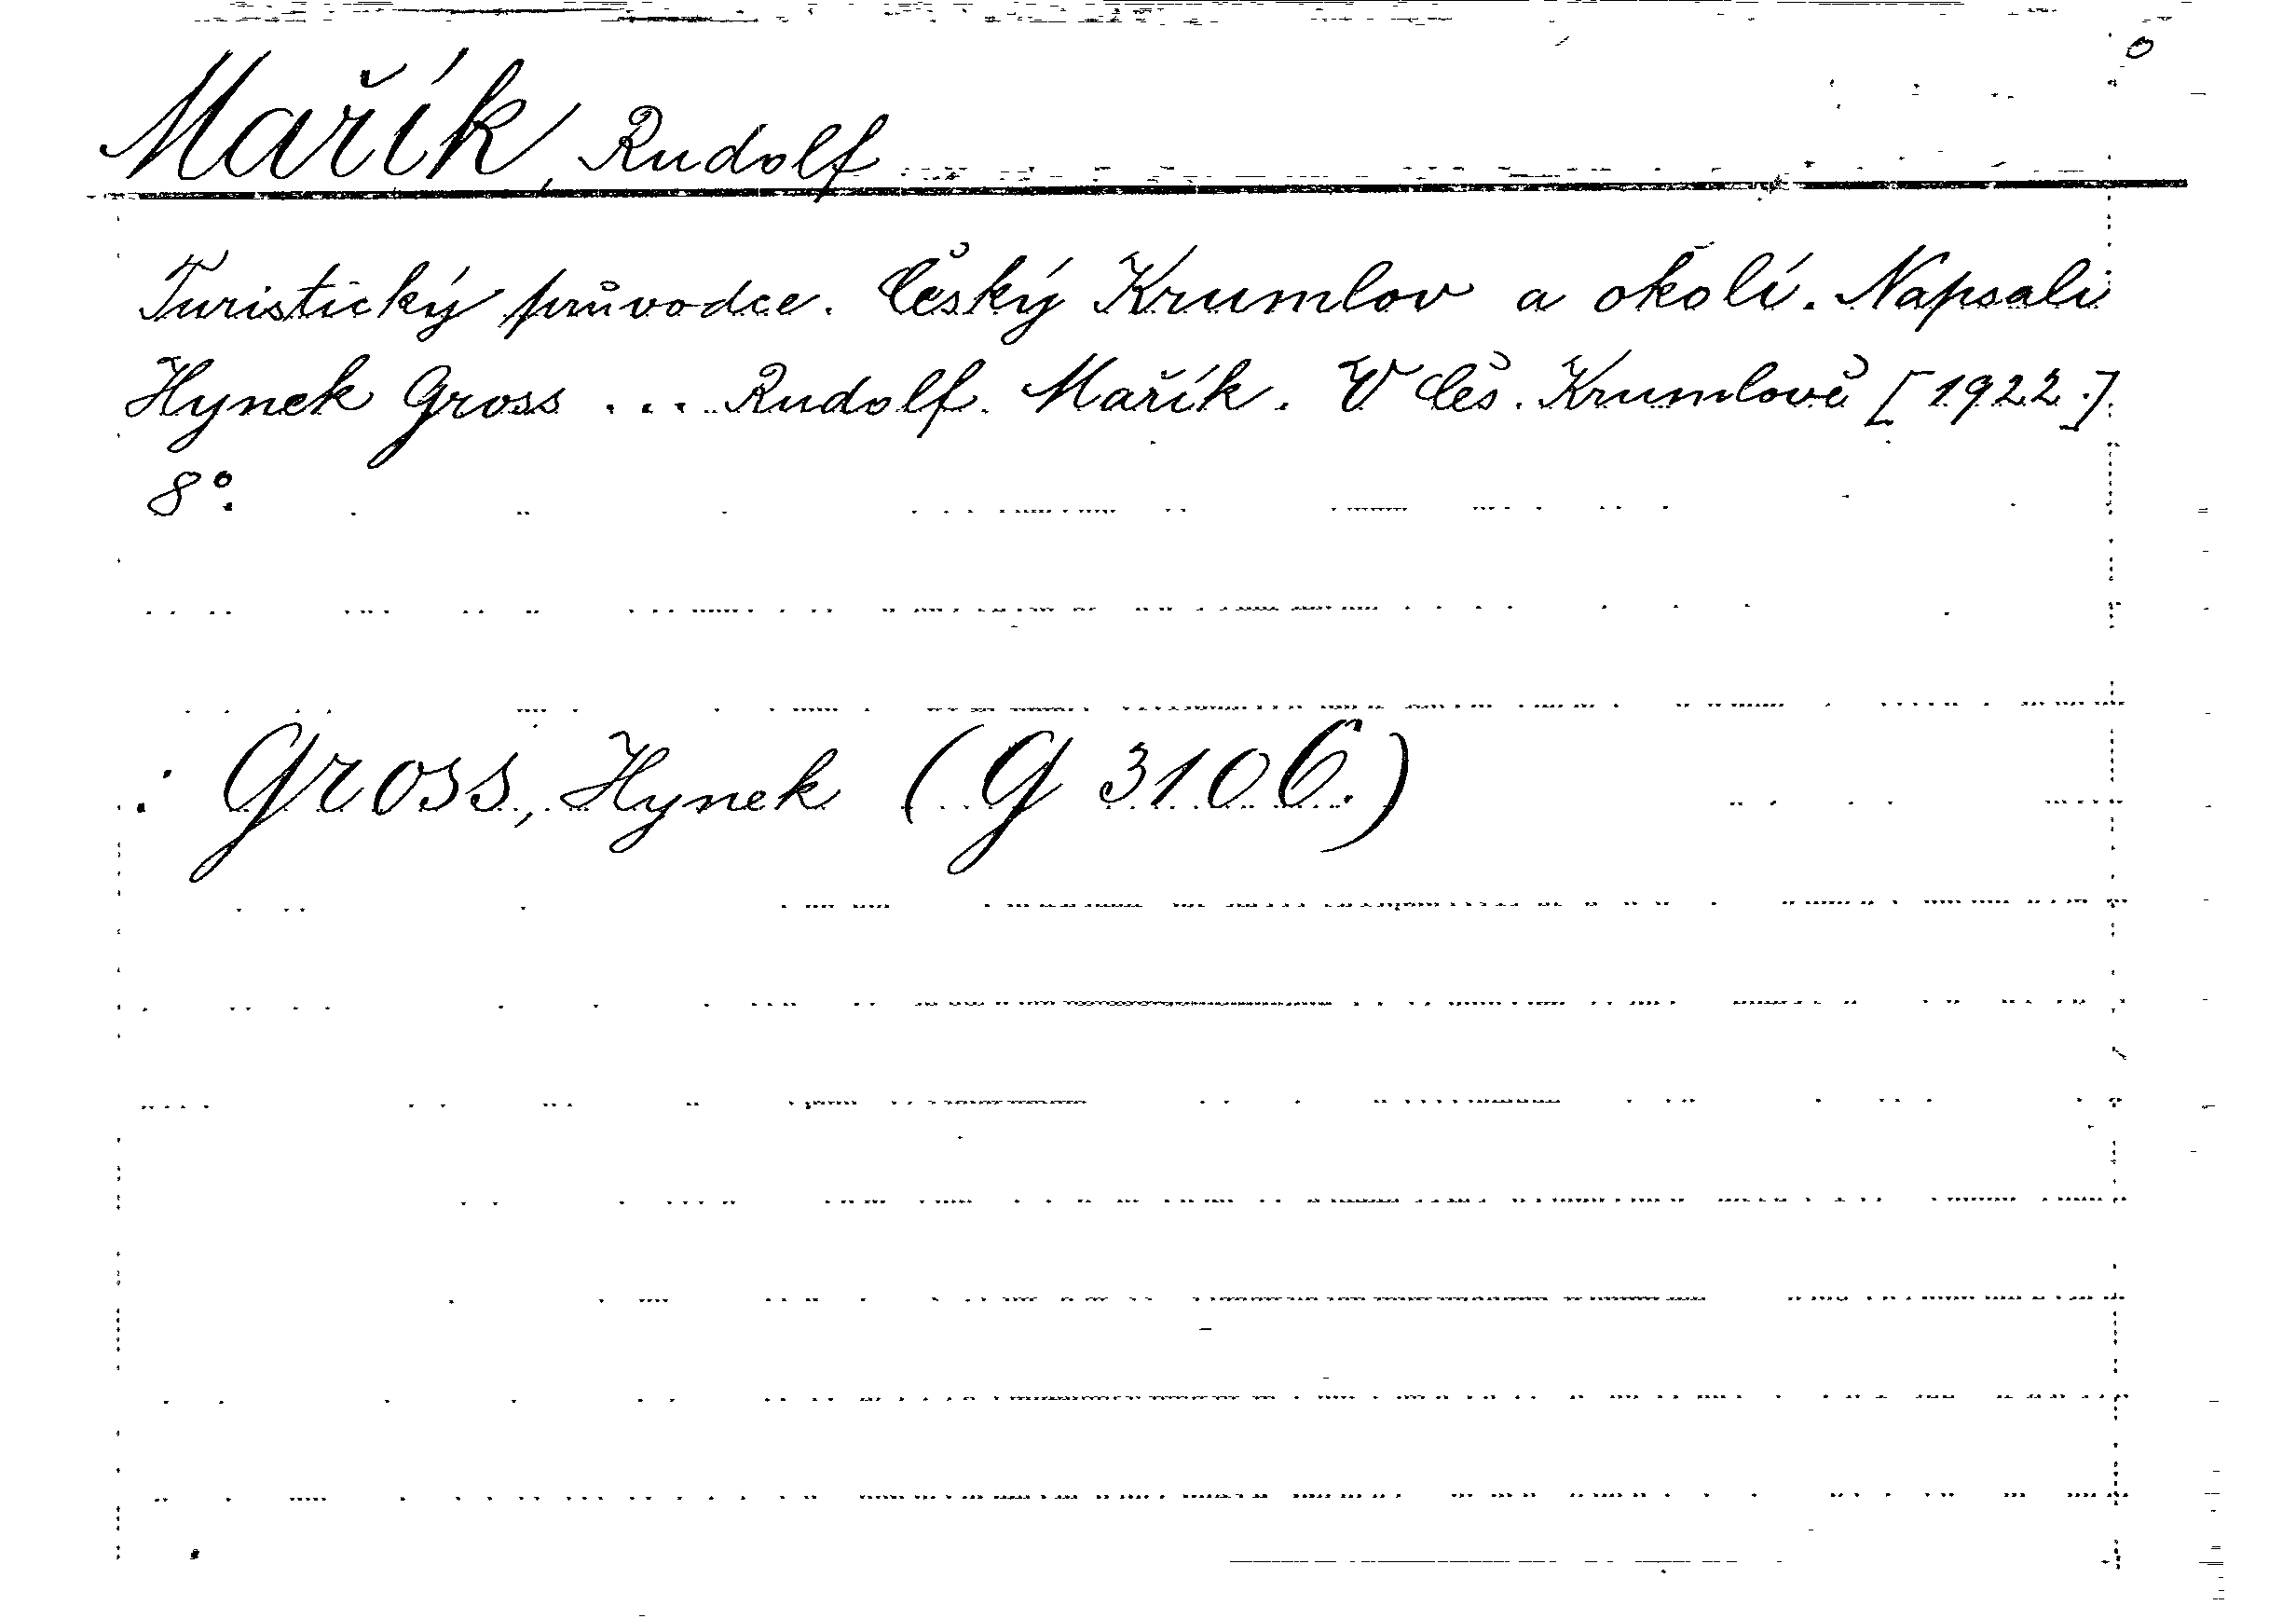 Mařík, Rudolf
Turistický průvodce. Český Krumlov a okolí. Napsali
Hynek Gross ... Rudolf Mařík. V Čes. Krumlově [1922.]
8°.
: Gross, Hynek (G 310 6.)